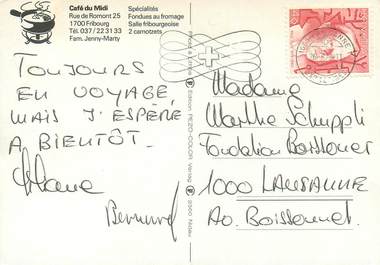 Café du Midi
Rue de Romont 25
1700 Fribourg
Tel. 037/22 31 33
Fam. Jenny-Marty
Spécialités
Fondues au fromage
Salle fribourgeoise
2 carnotzets
TOUJOURS
EN VOYAGE,
MAIS J'ESPÈRE
A BIENTÔT.
Bernard
Edition PEZO-COLOR Verlag
2500 Nidau
Madame
Marthe Schuppli
Fondation Boissonnet
1000 LAUSANNE
Av. Boissonnet